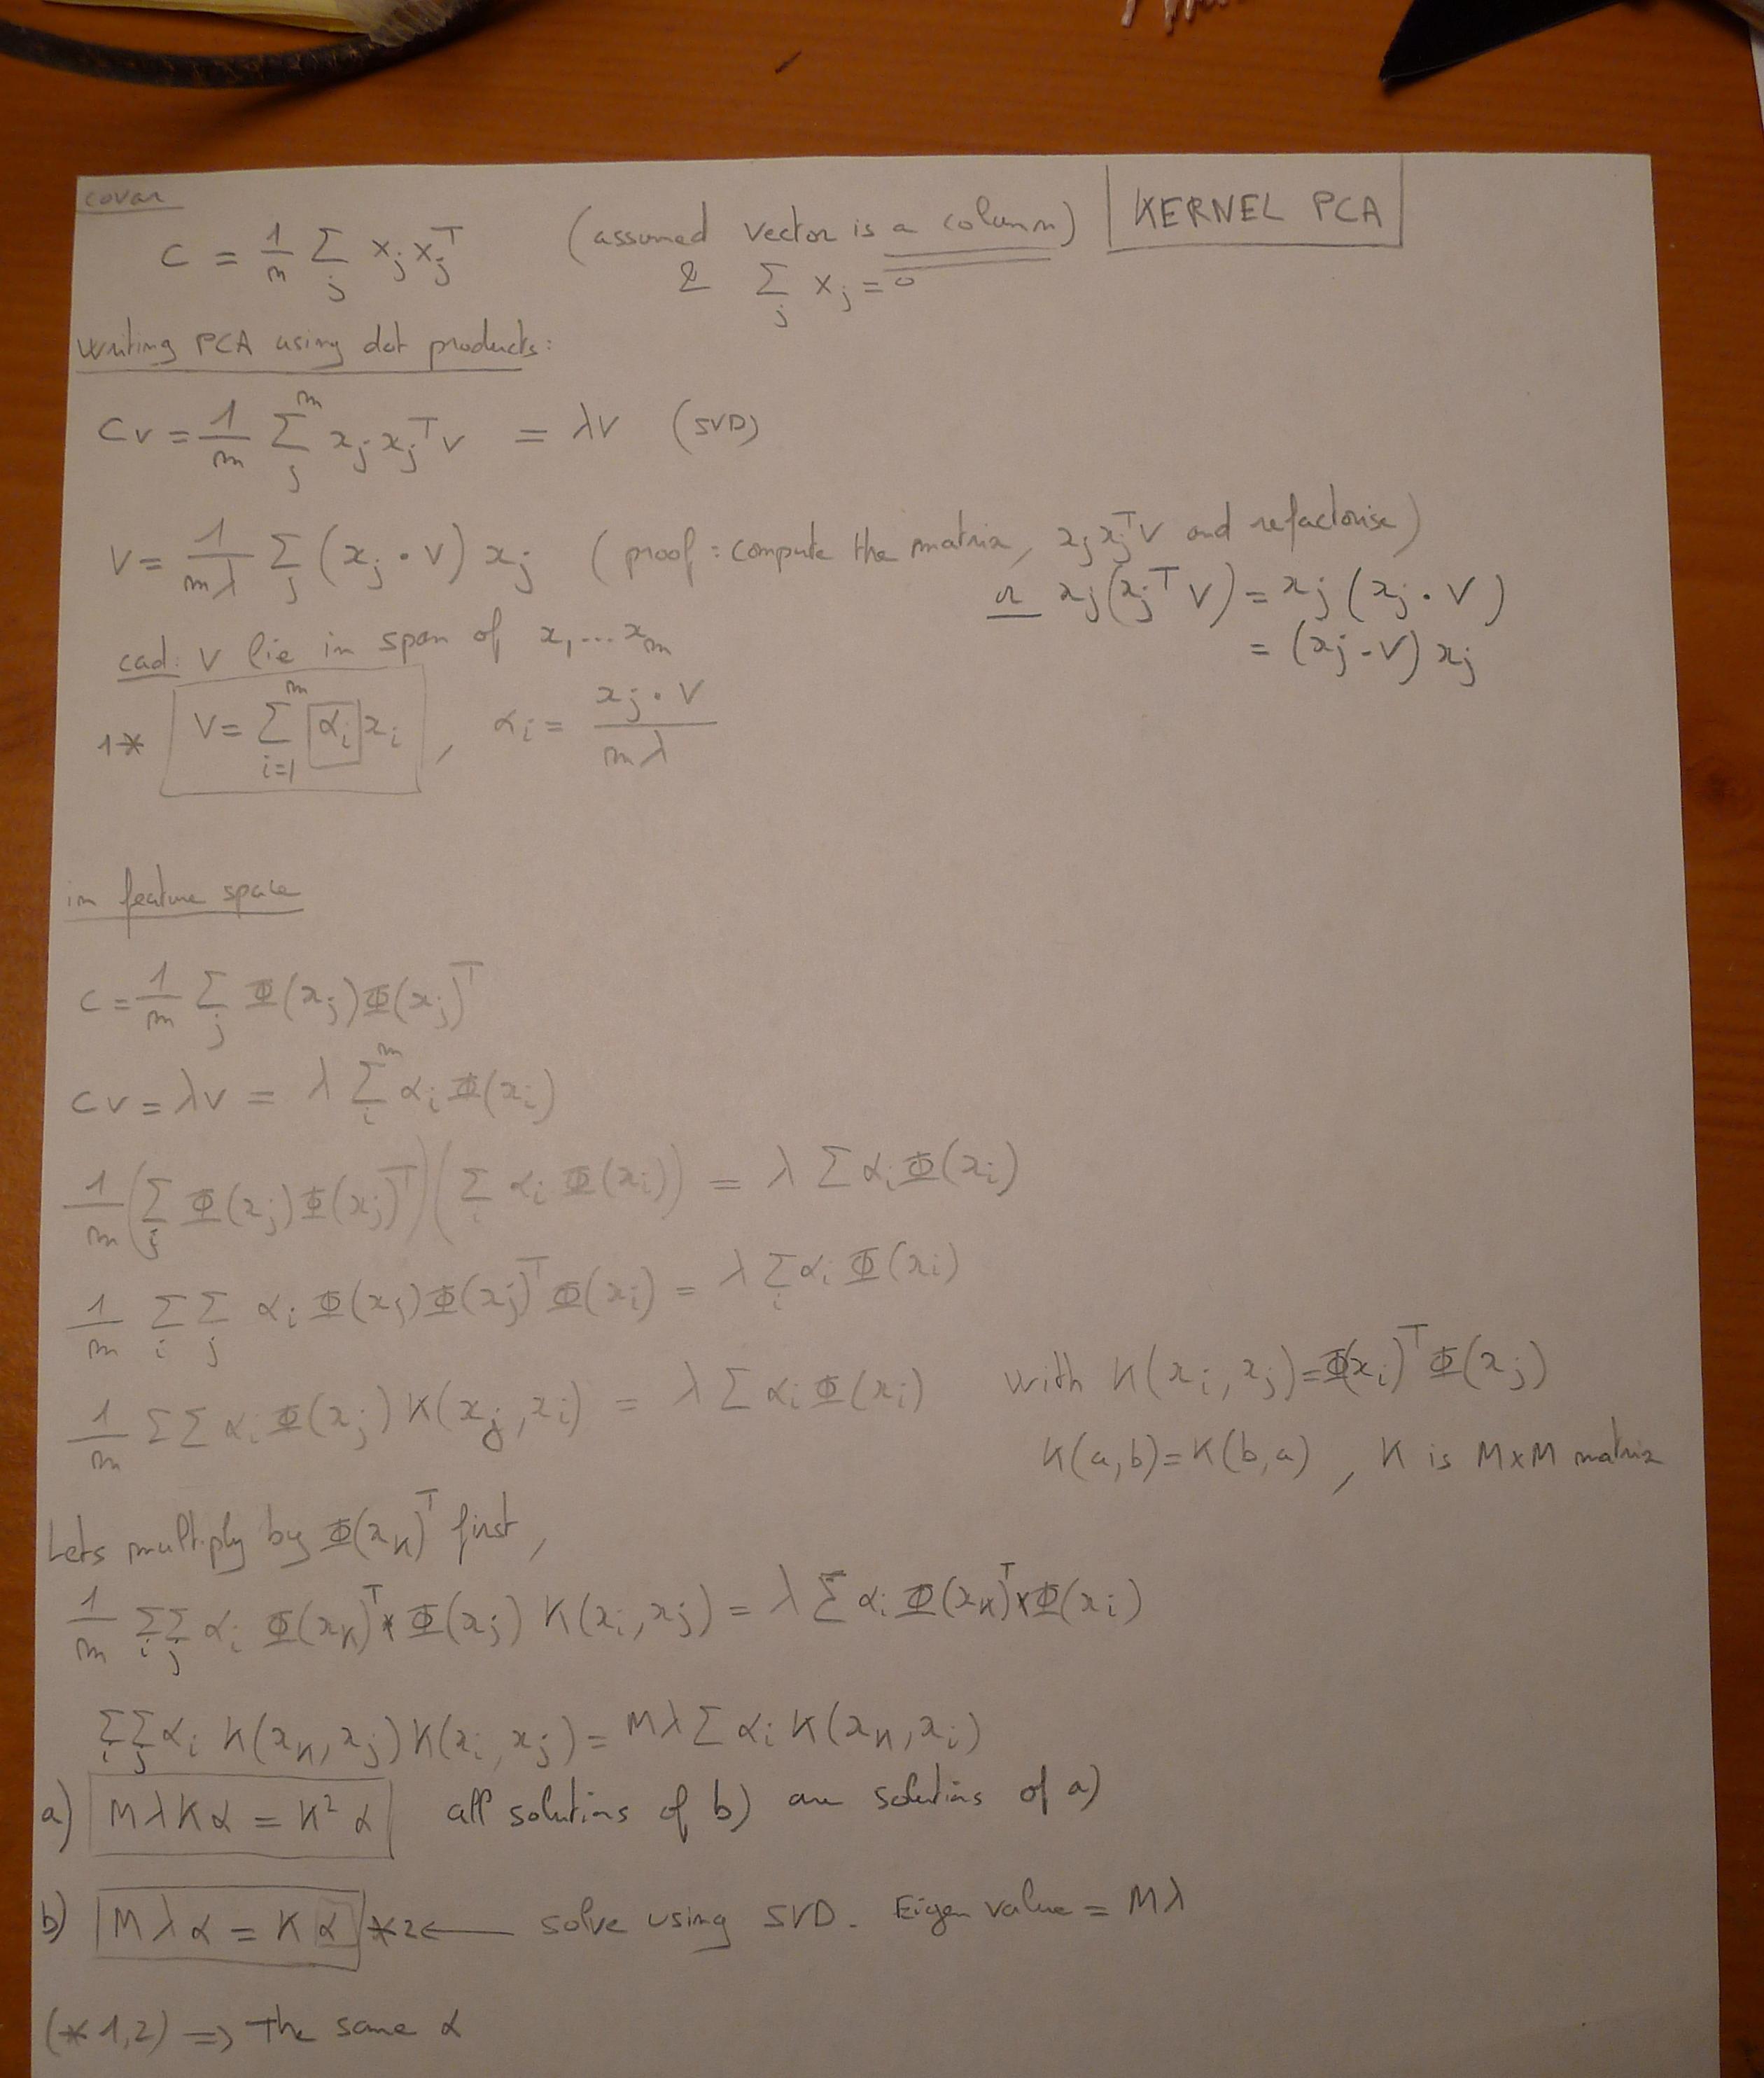 covar
KERNEL PCA
C = 1/m Σ_j x_j x_j^T (assumed vector is a column)
& Σ_j x_j = 0
Writing PCA using dot products:
Cv = 1/m Σ_j^m x_j x_j^T v = λv (SVD)
V = 1/(mλ) Σ_j (x_j · v) x_j (proof: compute the matrix, x_j x_j^T v and refactorise)
or x_j(x_j^T v) = x_j (x_j · v)
= (x_j · v) x_j
cad: v lie in span of x_1 ... x_m
1* V = Σ_{i=1}^m α_i x_i , α_i = (x_j · v)/(mλ)
in feature space
C = 1/m Σ_j Φ(x_j)Φ(x_j)^T
Cv = λv = λ Σ_i^m α_i Φ(x_i)
1/m (Σ_j Φ(x_j)Φ(x_j)^T)(Σ_i α_i Φ(x_i)) = λ Σ α_i Φ(x_i)
1/m Σ_i Σ_j α_i Φ(x_j)Φ(x_j)^T Φ(x_i) = λ Σ_i α_i Φ(x_i)
1/m ΣΣ α_i Φ(x_j) K(x_j, x_i) = λ Σ α_i Φ(x_i) with K(x_i, x_j) = Φ(x_i)^T Φ(x_j)
K(a,b) = K(b,a) , K is M×M matrix
Lets multiply by Φ(x_k)^T first,
1/m Σ_i Σ_j α_i Φ(x_k)^T * Φ(x_j) K(x_i, x_j) = λ Σ α_i Φ(x_k)^T * Φ(x_i)
Σ_i Σ_j α_i K(x_k, x_j) K(x_i, x_j) = Mλ Σ α_i K(x_k, x_i)
a) MλKα = K² α all solutions of b) are solutions of a)
b) Mλα = Kα *2 ← solve using SVD. Eigen value = Mλ
(*1,2) ⇒ The same α